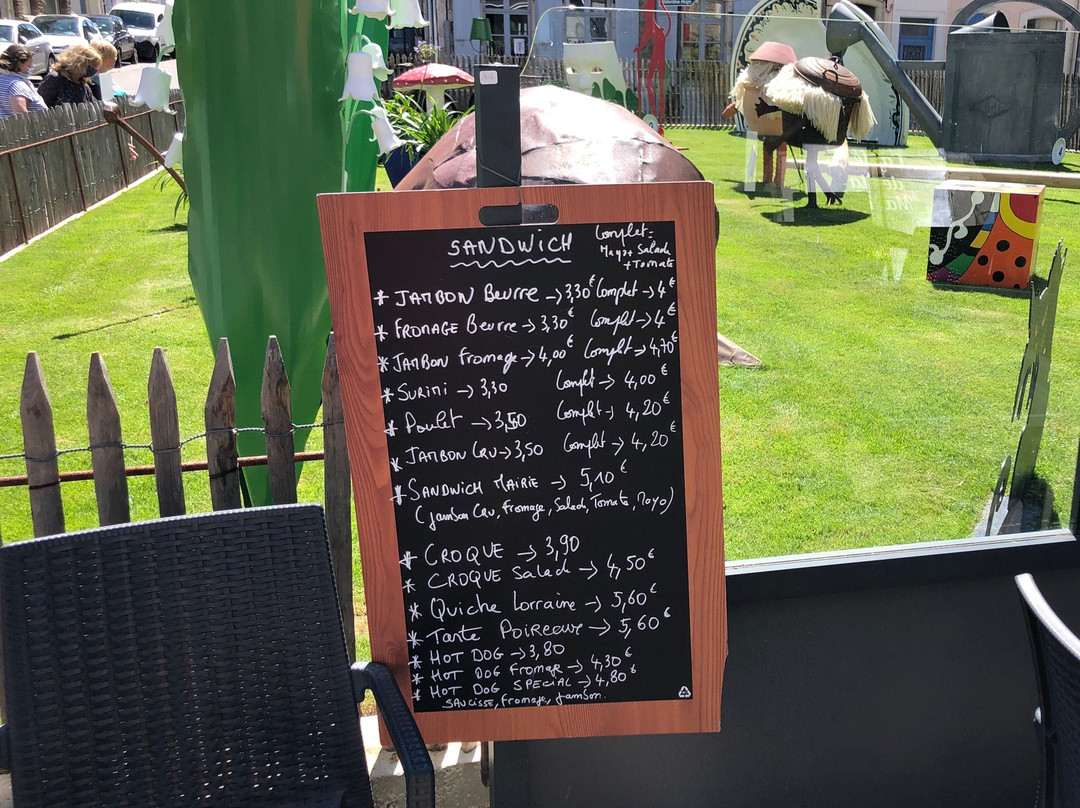 SANDWICH
Complet=
Mayo+ Salade
+Tomate
* JAMBON Beurre → 3,30€ Complet → 4€
* FROMAGE Beurre → 3,30€ Complet → 4€
* JAMBON Fromage → 4,00€ Complet → 4,70€
* SURIMI → 3,30 Complet → 4,00€
* Poulet → 3,50 Complet → 4,20€
* JAMBON CRU → 3,50 Complet → 4,20€
* SANDWICH MAIRIE → 5,10€
(jambon Cru, Fromage, Salade, Tomate, Mayo)
* CROQUE → 3,90
* CROQUE Salade → 4,50€
* Quiche Lorraine → 5,60€
* Tarte POIREAUX → 5,60€
* HOT DOG → 3,80
* HOT DOG FROMAGE → 4,30€
* HOT DOG SPECIAL → 4,80€
SAUCISSE, fromage, jambon.